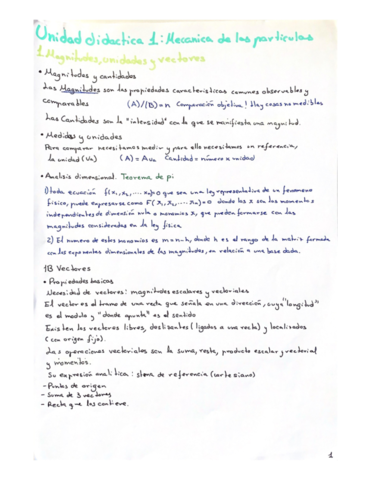 Unidad didactica 1: Mecanica de las particulas
1 Magnitudes, unidades y vectores
• Magnitudes y cantidades
Las Magnitudes son las propiedades caracteristicas comunes observables y
comparables (A)/(B)=n Comparación objetiva! Hay cosas no medibles
Las Cantidades son la "intensidad" con la que se manifiesta una magnitud.
• Medidas y unidades
Para comparar necesitamos medir y para ello necesitamos un referencia,
la unidad (Ua) (A) = A Ua Cantidad = número x unidad)
• Analisis dimensional. Teorema de pi
1) toda ecuación f(x₁, x₂, ... xₙ)=0 que sea una ley representativa de un fenomeno
fisico, puede expresarse como F(π₁, π₂, ... πₘ)=0 donde las π son los
independientes de dimensión o monomios π, que pueden formarse con las
magnitudes consideradas en la ley fisica
2) El numero de estos monomios es m=n-h, donde h es el rango de la matriz formada
con los exponentes dimensionales de las magnitudes, en relación a una base dada.
1B Vectores
• Propiedades basicas
Necesidad de vectores: magnitudes escalares y vectoriales
El vector es el tramo de una recta que señala en una dirección, cuya "longitud"
es el modulo y "donde apunta" es el sentido.
Existen los vectores libres, deslizantes (ligados a una recta) y localizados
(con origen fijo).
Las operaciones vectoriales son la suma, resta, producto escalar y vectorial
y momentos.
Su expresión analitica: sistema de referencia (cartesiano)
- Puntos de origen
- Suma de 3 vectores
- Recta que los contiene.
1